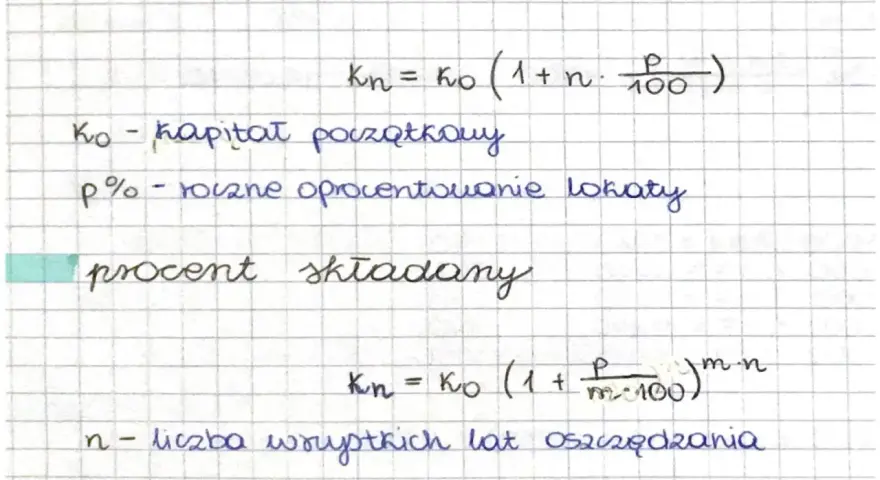 Kn = K0 (1 + n · p/100)
K0 - kapitał początkowy
p% - roczne oprocentowanie lokaty
procent składany
Kn = K0 (1 + p/m·100)^m·n
n - liczba wszystkich lat oszczędzania